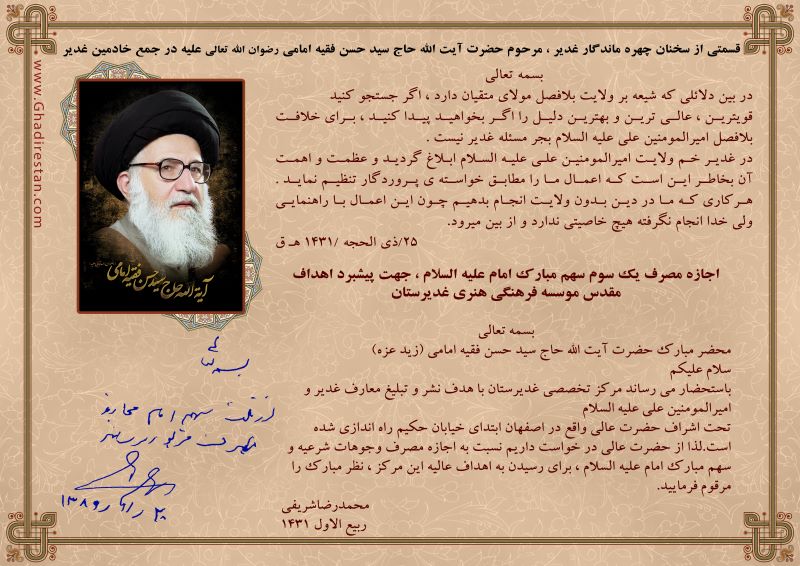 قسمتی از سخنان چهره ماندگار غدیر ، مرحوم حضرت آیت الله حاج سید حسن فقیه امامی رضوان الله تعالی علیه در جمع خادمین غدیر
بسمه تعالی
در بین دلائلی که شیعه بر ولایت بلافصل مولای متقیان دارد ، اگر جستجو کنید
قویترین ، عالی ترین و بهترین دلیل را اگر بخواهید پیدا کنید ، برای خلافت
بلافصل امیرالمومنین علی علیه السلام بجر مسئله غدیر نیست .
در غدیر خم ولایت امیرالمومنین علی علیه السلام ابلاغ گردید و عظمت و اهمت
آن بخاطر این است که اعمال ما را مطابق خواسته ی پروردگار تنظیم نماید .
هرکاری که ما در دین بدون ولایت انجام بدهیم چون این اعمال با راهنمایی
ولی خدا انجام نگرفته هیچ خاصیتی ندارد و از بین میرود.
۲۵/ذی الحجه /۱۴۳۱ هـ ق
www.Ghadirestan.com
آیة الله حاج سید حسن فقیه امامی
اجازه مصرف یک سوم سهم مبارک امام علیه السلام ، جهت پیشبرد اهداف
مقدس موسسه فرهنگی هنری غدیرستان
بسمه تعالی
محضر مبارک حضرت آیت الله حاج سید حسن فقیه امامی (زید عزه)
سلام علیکم
باستحضار می رساند مرکز تخصصی غدیرستان با هدف نشر و تبلیغ معارف غدیر و
امیرالمومنین علی علیه السلام
تحت اشراف حضرت عالی واقع در اصفهان ابتدای خیابان حکیم راه اندازی شده
است.لذا از حضرت عالی در خواست داریم نسبت به اجازه مصرف وجوهات شرعیه و
سهم مبارک امام علیه السلام ، برای رسیدن به اهداف عالیه این مرکز ، نظر مبارک را
مرقوم فرمایید.
محمدرضاشریفی
ربیع الاول ۱۴۳۱
بسمه تعالی
از ثلث سهم امام مجازید